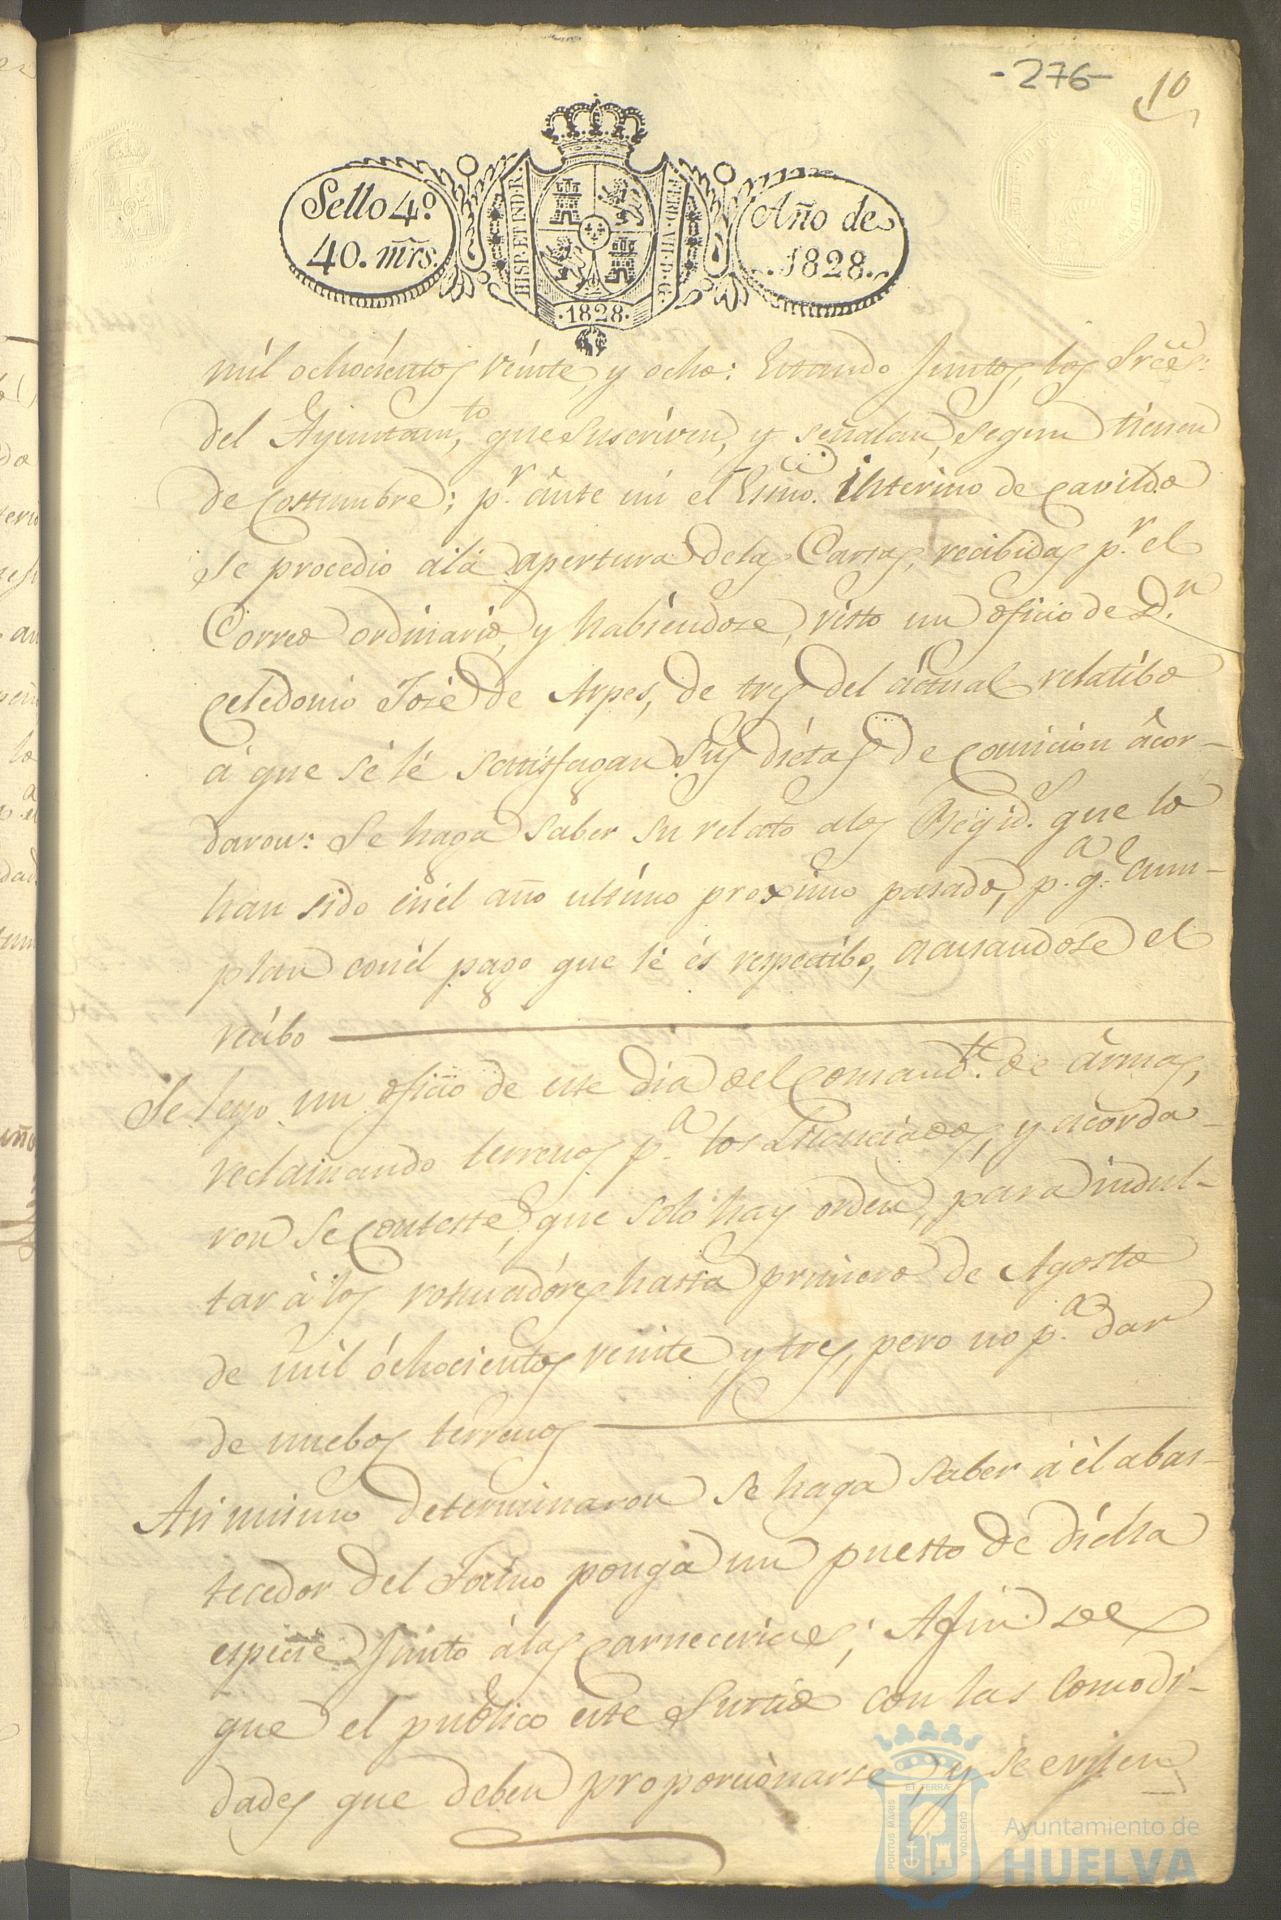 -276-
10
Sello 4º
40. mrs.
HISP. ET IND. R.
FERD. VII. D. G.
Año de
1828.
·1828·
mil ochocientos veinte, y ocho: Estando Juntos, los Srēs:
del Ayuntamto, que suscriven, y señalan, segun tienen
de costumbre; pr. ánte mi el Essno. interino de cavildo
se procedio álá apertura delas Cartas, recibidas pr. el
Correo ordinario, y habiendose, visto un oficio de Dn.
Celedonio José de Arpes, de tres del áctual relatibo
á que sé lé sattisfagan sus diétas de comicion ácor-
daron: Se haga saber su relato alos Regid. que lo
han sido enél año ultimo proximo pasado, pa. qe. cum-
plan conél pago que lé és respectibo, acusandose el
recibo
Se leyo un oficio de este dia del Comandte. de ármas,
reclamando terrenos pa. los Licenciados, y acorda-
ron se conteste, que solo hay orden, para indul-
tar á los roturadóres hasta primero de Agosto
de mil óchocientos veinte, y tres, pero no pa. dar
de nuebos terrenos
Asi mismo determinaron se haga saber á él abas-
tecedor del Tosino ponga un puesto de dicha
especie Junto álas carnecerias; A fin. de
que el publico este surtido con las Comodi-
dades que deben proporcionarse, y se eviten
PORTUS MARIS
ET TERRÆ
CUSTODIA
Ayuntamiento de
HUELVA